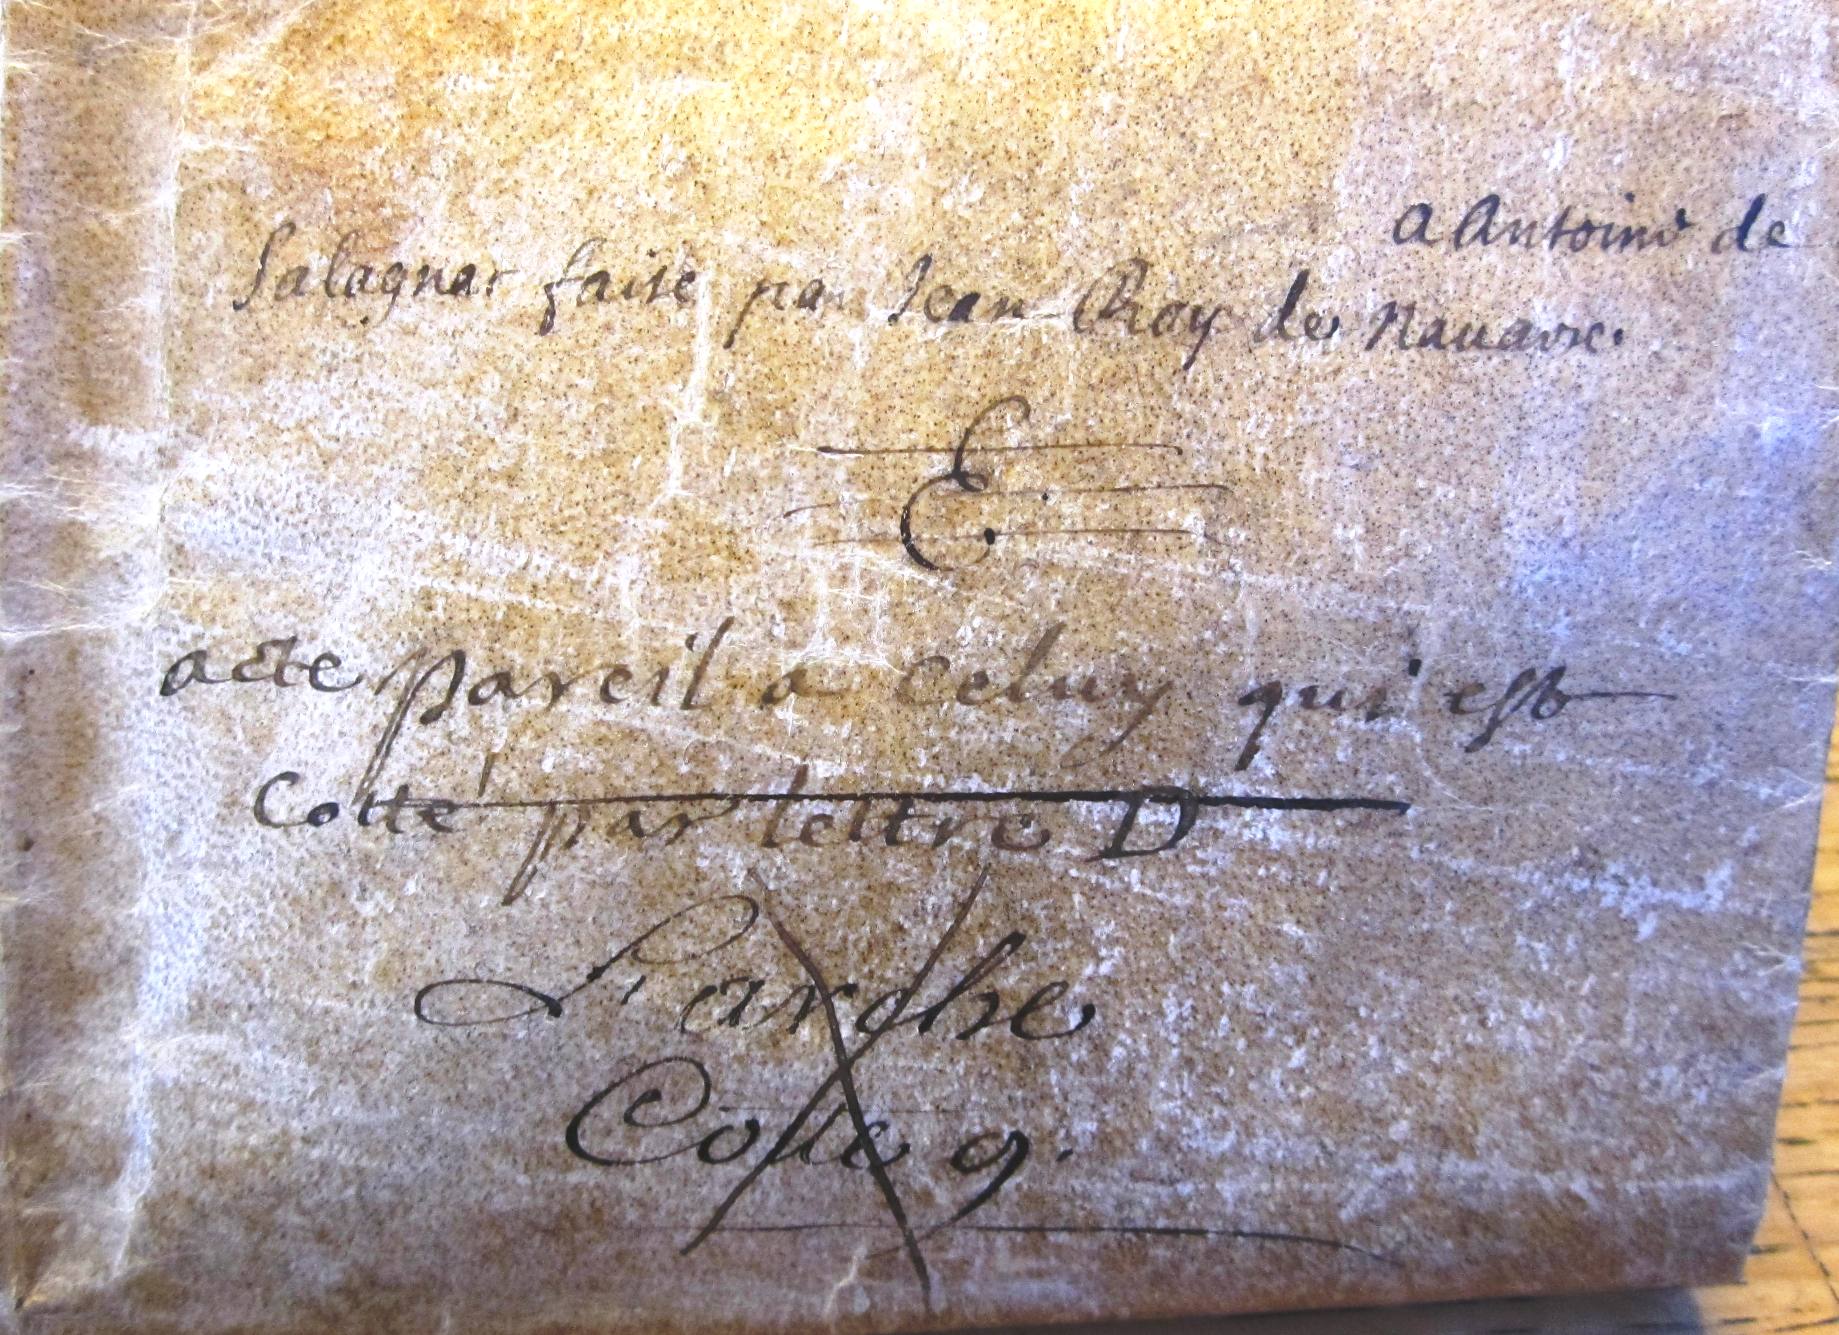 a Antoine de
Salagnac faite par Jean Roy de Nauarre.
E
acte pareil a Celuy qui est
Cotté par lettre D
L'arche
Cotte 9.